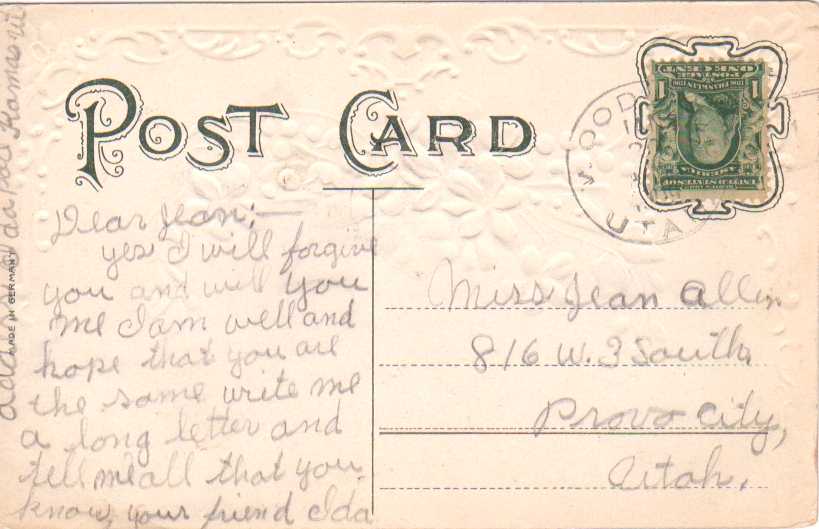 POST CARD
WOOD
UTA
POSTAGE
ONE CENT
1 1
FRANKLIN
Dear Jean:—
yes I will forgive
you and will you
me I am well and
hope that you are
the same write me
a long letter and
tell me all that you
know, your friend Ida
MADE IN GERMANY
Miss Jean Allen
816 W. 3 South,
Provo City,
Utah.